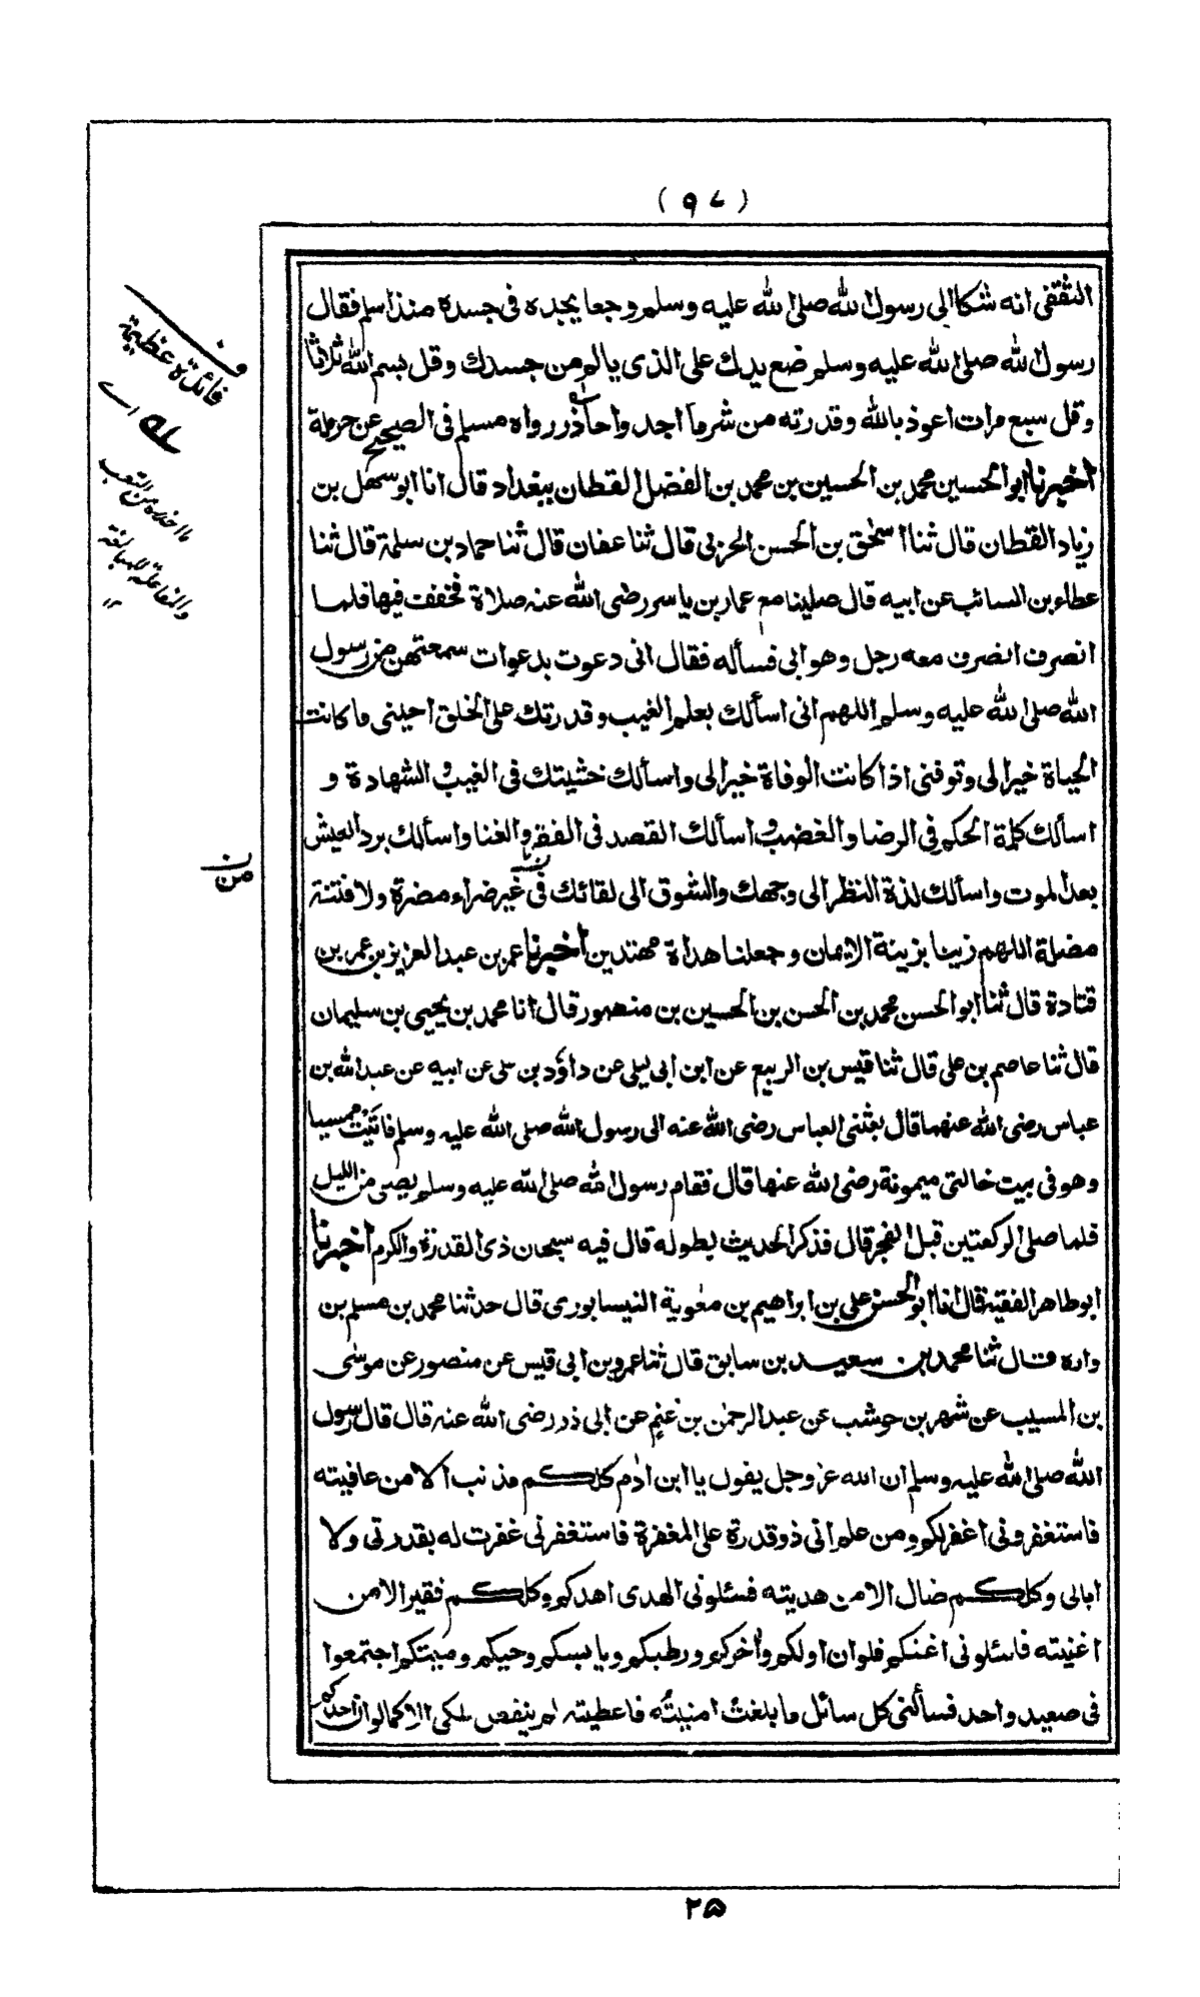 (٩٧)
الثقفى انه شكا الى رسول الله صلى الله عليه وسلم وجعا يجده فى جسده منذ اسلم فقال
رسول الله صلى الله عليه وسلم ضع يدك على الذى يالم من جسدك وقل بسم الله ثلاثا
وقل سبع مرات اعوذ بالله وقدرته من شر ما اجد واحاذر رواه مسلم فى الصحيح عن حرملة
اخبرنا ابو الحسين محمد بن الحسين بن محمد بن الفضل القطان ببغداد قال انا ابو سهل بن
زياد القطان قال ثنا اسحٰق بن الحسن الحربى قال ثنا عفان قال ثنا حماد بن سلمة قال ثنا
عطاء بن السائب عن ابيه قال صلينا مع عمار بن ياسر رضى الله عنه صلاة فخفف فيها فلما
انصرف انصرف معه رجل وهو ابى فسأله فقال انى دعوت بدعوات سمعتهن من رسول
الله صلى الله عليه وسلم اللهم انى اسألك بعلم الغيب وقدرتك على الخلق احينى ما كانت
الحياة خيرا لى وتوفنى اذا كانت الوفاة خيرا لى واسألك خشيتك فى الغيب والشهادة و
اسألك كلمة الحكم فى الرضا والغضب واسألك القصد فى الفقر والغنا واسألك برد العيش
بعد الموت واسألك لذة النظر الى وجهك والشوق الى لقائك فى غير ضراء مضرة ولا فتنة
مضلة اللهم زينا بزينة الايمان وجعلنا هداة مهتدين اخبرنا عمر بن عبد العزيز بن عمر بن
قتادة قال ثنا ابو الحسن محمد بن الحسن بن الحسين بن منصور قال انا محمد بن يحيى بن سليمان
قال ثنا عاصم بن على قال ثنا قيس بن الربيع عن ابن ابى ليلى عن داؤد بن على عن ابيه عن عبد الله بن
عباس رضى الله عنهما قال بعثنى العباس رضى الله عنه الى رسول الله صلى الله عليه وسلم فاتيت ممسيا
وهو فى بيت خالتى ميمونة رضى الله عنها قال فقام رسول الله صلى الله عليه وسلم يصلى من الليل
فلما صلى الركعتين قبل الفجر قال فذكر الحديث بطوله قال فيه سبحان ذى القدرة والكرم اخبرنا
ابو طاهر الفقيه قال انا ابو الحسن على بن ابراهيم بن معٰوية النيسابورى قال حدثنا محمد بن مسلم بن
واره قال ثنا محمد بن سعيد بن سابق قال ثنا عمرو بن ابى قيس عن منصور عن موسٰى
بن المسيب عن شهر بن حوشب عن عبد الرحمٰن بن غنم عن ابى ذر رضى الله عنه قال قال رسول
الله صلى الله عليه وسلم ان الله عز وجل يقول يا ابن اٰدم كلكم مذنب الا من عافيته
فاستغفرونى اغفر لكم ومن علم انى ذو قدرة على المغفرة فاستغفرنى غفرت له بقدرتى ولا
ابالى وكلكم ضال الا من هديته فسئلونى الهدى اهدكم وكلكم فقير الا من
اغنيته فاسئلونى اغنكم فلو ان اولكم واٰخركم ورطبكم ويابسكم وحيكم وميتكم اجتمعوا
فى صعيد واحد فسألنى كل سائل ما بلغت امنيته فاعطيته لم ينقص ملكى الا كما لو ان احدكم
ف
فائدة عظيمة
سله اے
والمفاعلة للمبالغة
١٢
من
٢٥